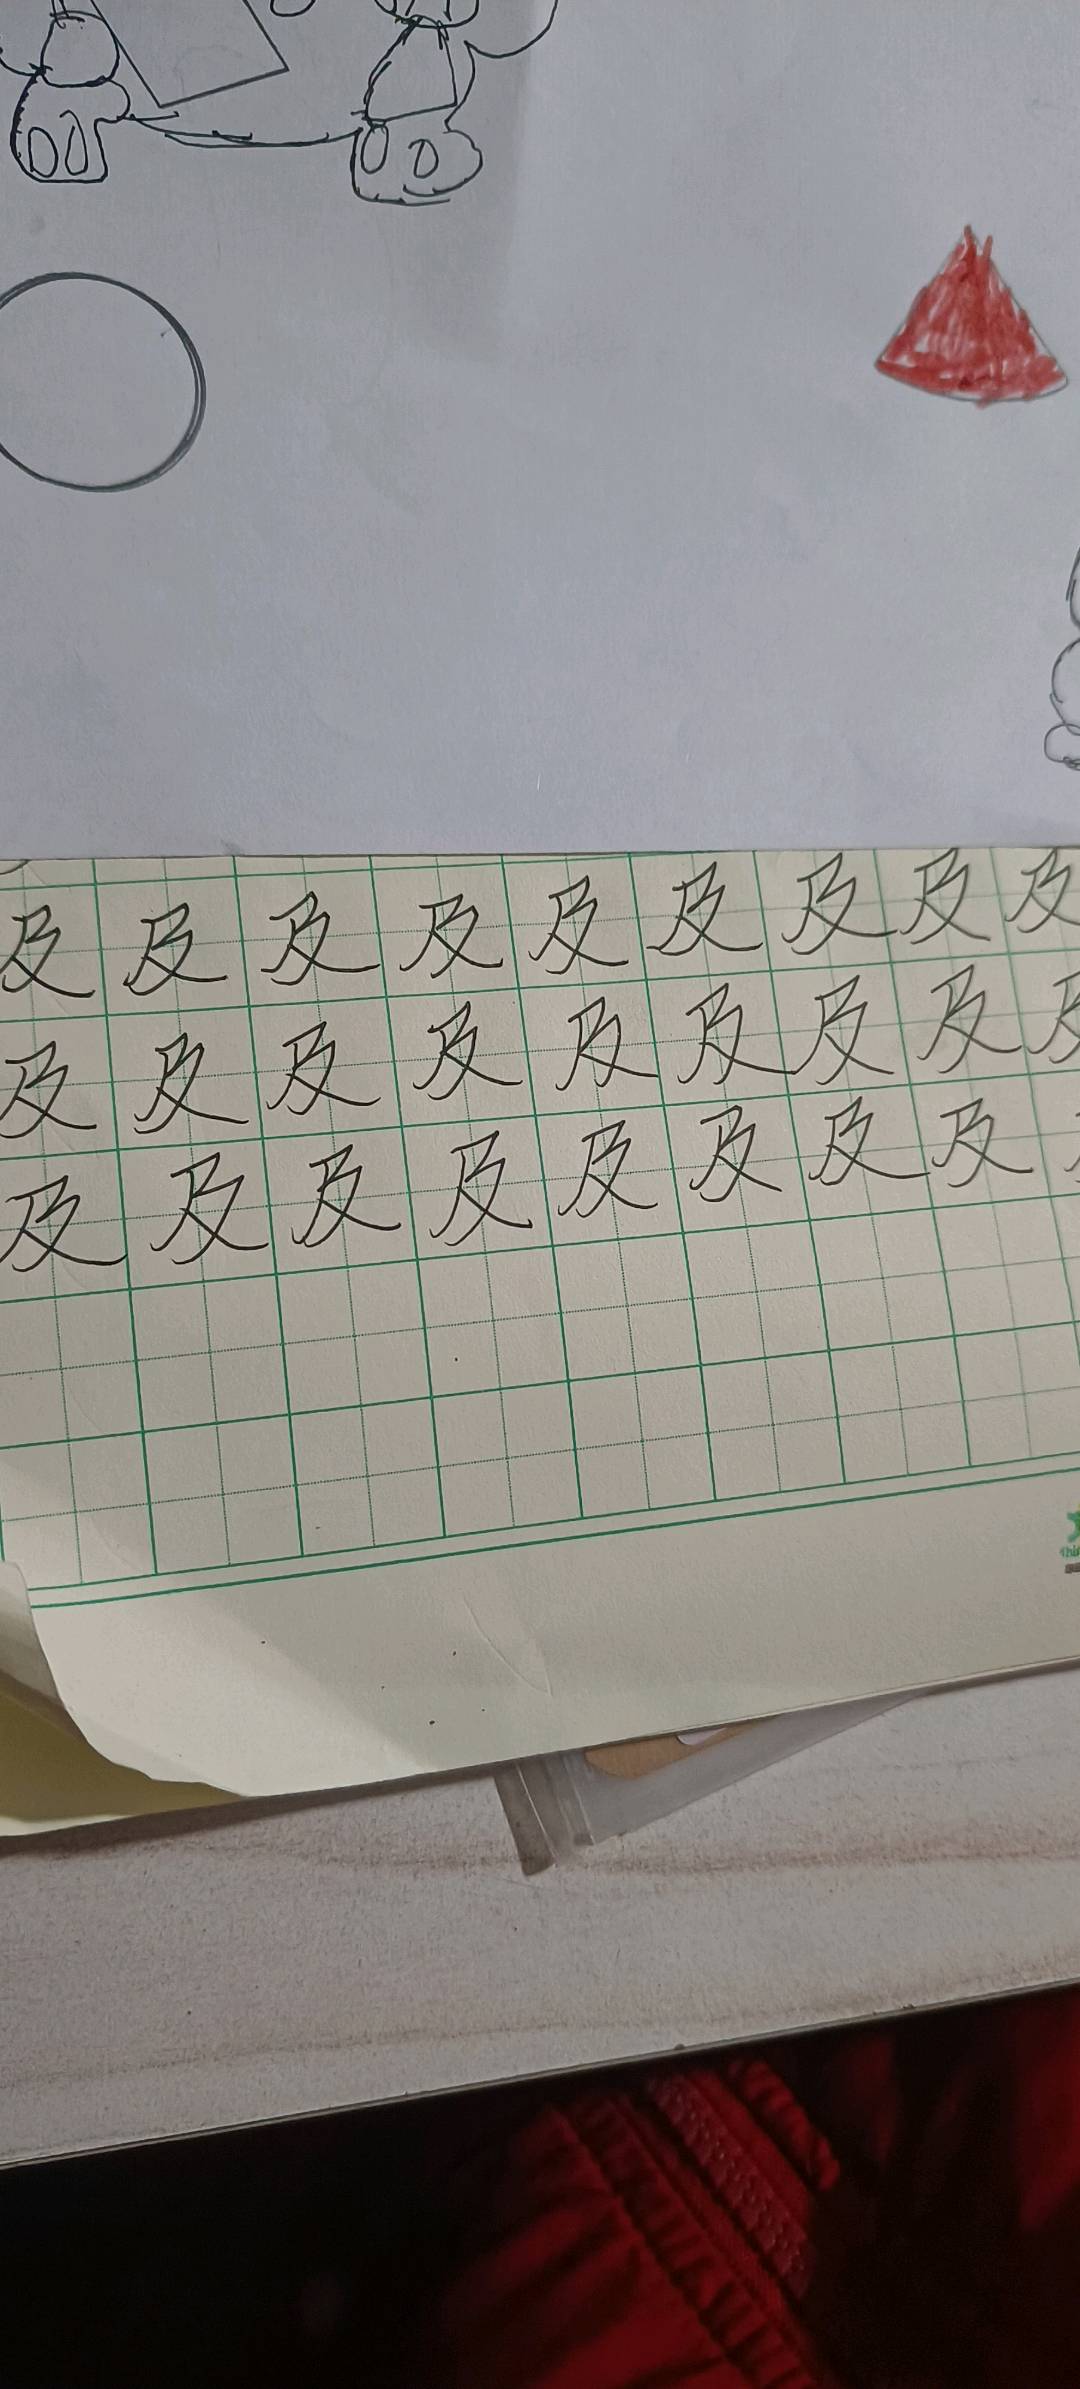 及及及及及及及及及
及及及及及及及及及
及及及及及及及及